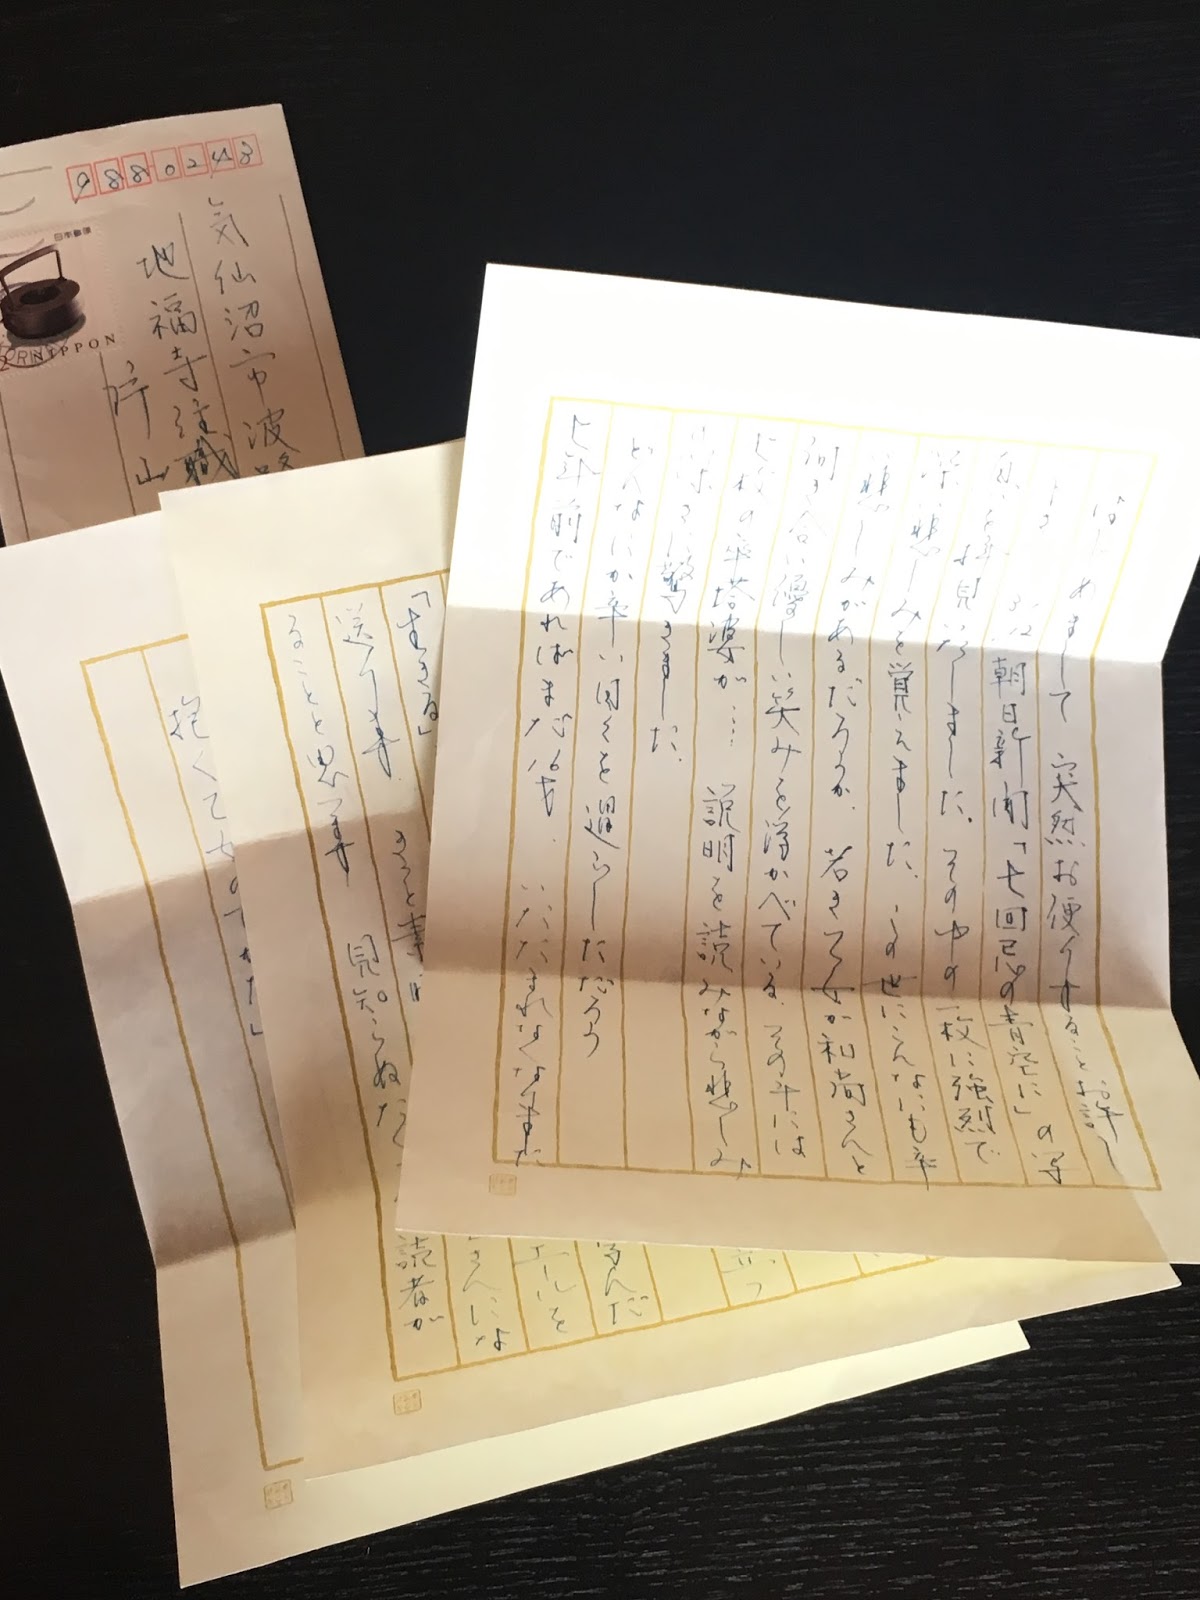 9880243
気仙沼市波路
地福寺住職
片山
日本郵便
NIPPON
はじめまして 突然お便りすることお許し
下さい
3/12 朝日新聞「七回忌の青空に」の写
真を拝見いたしました。その中の一枚に強烈で
深い悲しみを覚えました。この世にこんなにも辛
い悲しみがあるだろうか。若き乙女が和尚さんと
向き合い優しい笑みを浮かべている。その斗には
七枚の卒塔婆が… 説明を読みながら悲しみ
の深さに驚きました。
どんなにか辛い日々を過らしただろう
七年前であればまだ16才。いたたまれなくなりました
「生きる」
送ります。きっと素
ることと思います 見知らぬ
読者が
さんにな
エールを
んだ
立つ
抱く乙女のすがた」